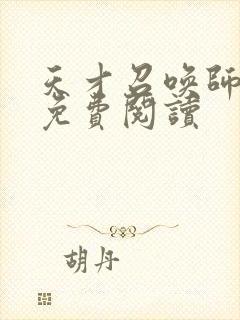 天才召喚師
免費閱讀
胡丹